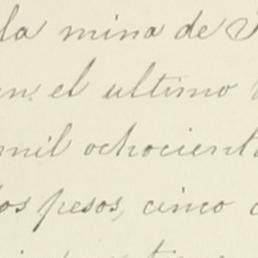 la mina de
en el ultimo
mil ochocient
os pesos, cinco